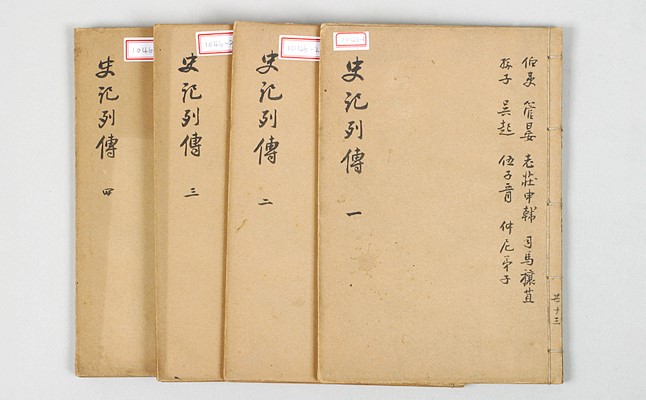 伯夷 管晏 老莊申韓 司馬穰苴
孫子 吳起 伍子胥 仲尼弟子
共十三
史記列傳 一
史記列傳 二
史記列傳 三
史記列傳 四